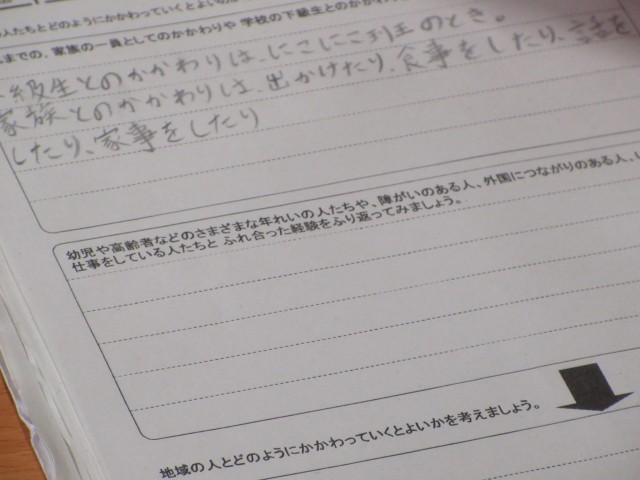 人たちとどのようにかかわっていくとよいか
までの、家族の一員としてのかかわりや 学校の下級生とのかかわ
級生とのかかわりは、にこにこ班のとき。
家族とのかかわりは、出かけたり、食事をしたり、話を
したり、家事をしたり
幼児や高齢者などのさまざまな年れいの人たちや、障がいのある人、外国につながりのある人、
仕事をしている人たちと ふれ合った経験をふり返ってみましょう。
地域の人とどのようにかかわっていくとよいかを考えましょう。